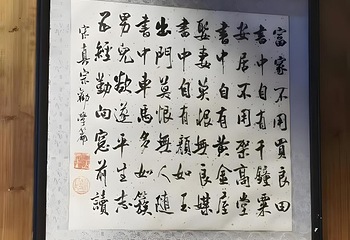 富家不用買良田
書中自有千鍾粟
安居不用架高堂
書中自有黃金屋
娶妻莫恨無良媒
書中自有顏如玉
出門莫恨無人隨
書中車馬多如簇
男兒欲遂平生志
五經勤向窓前讀
宋真宗勸學篇